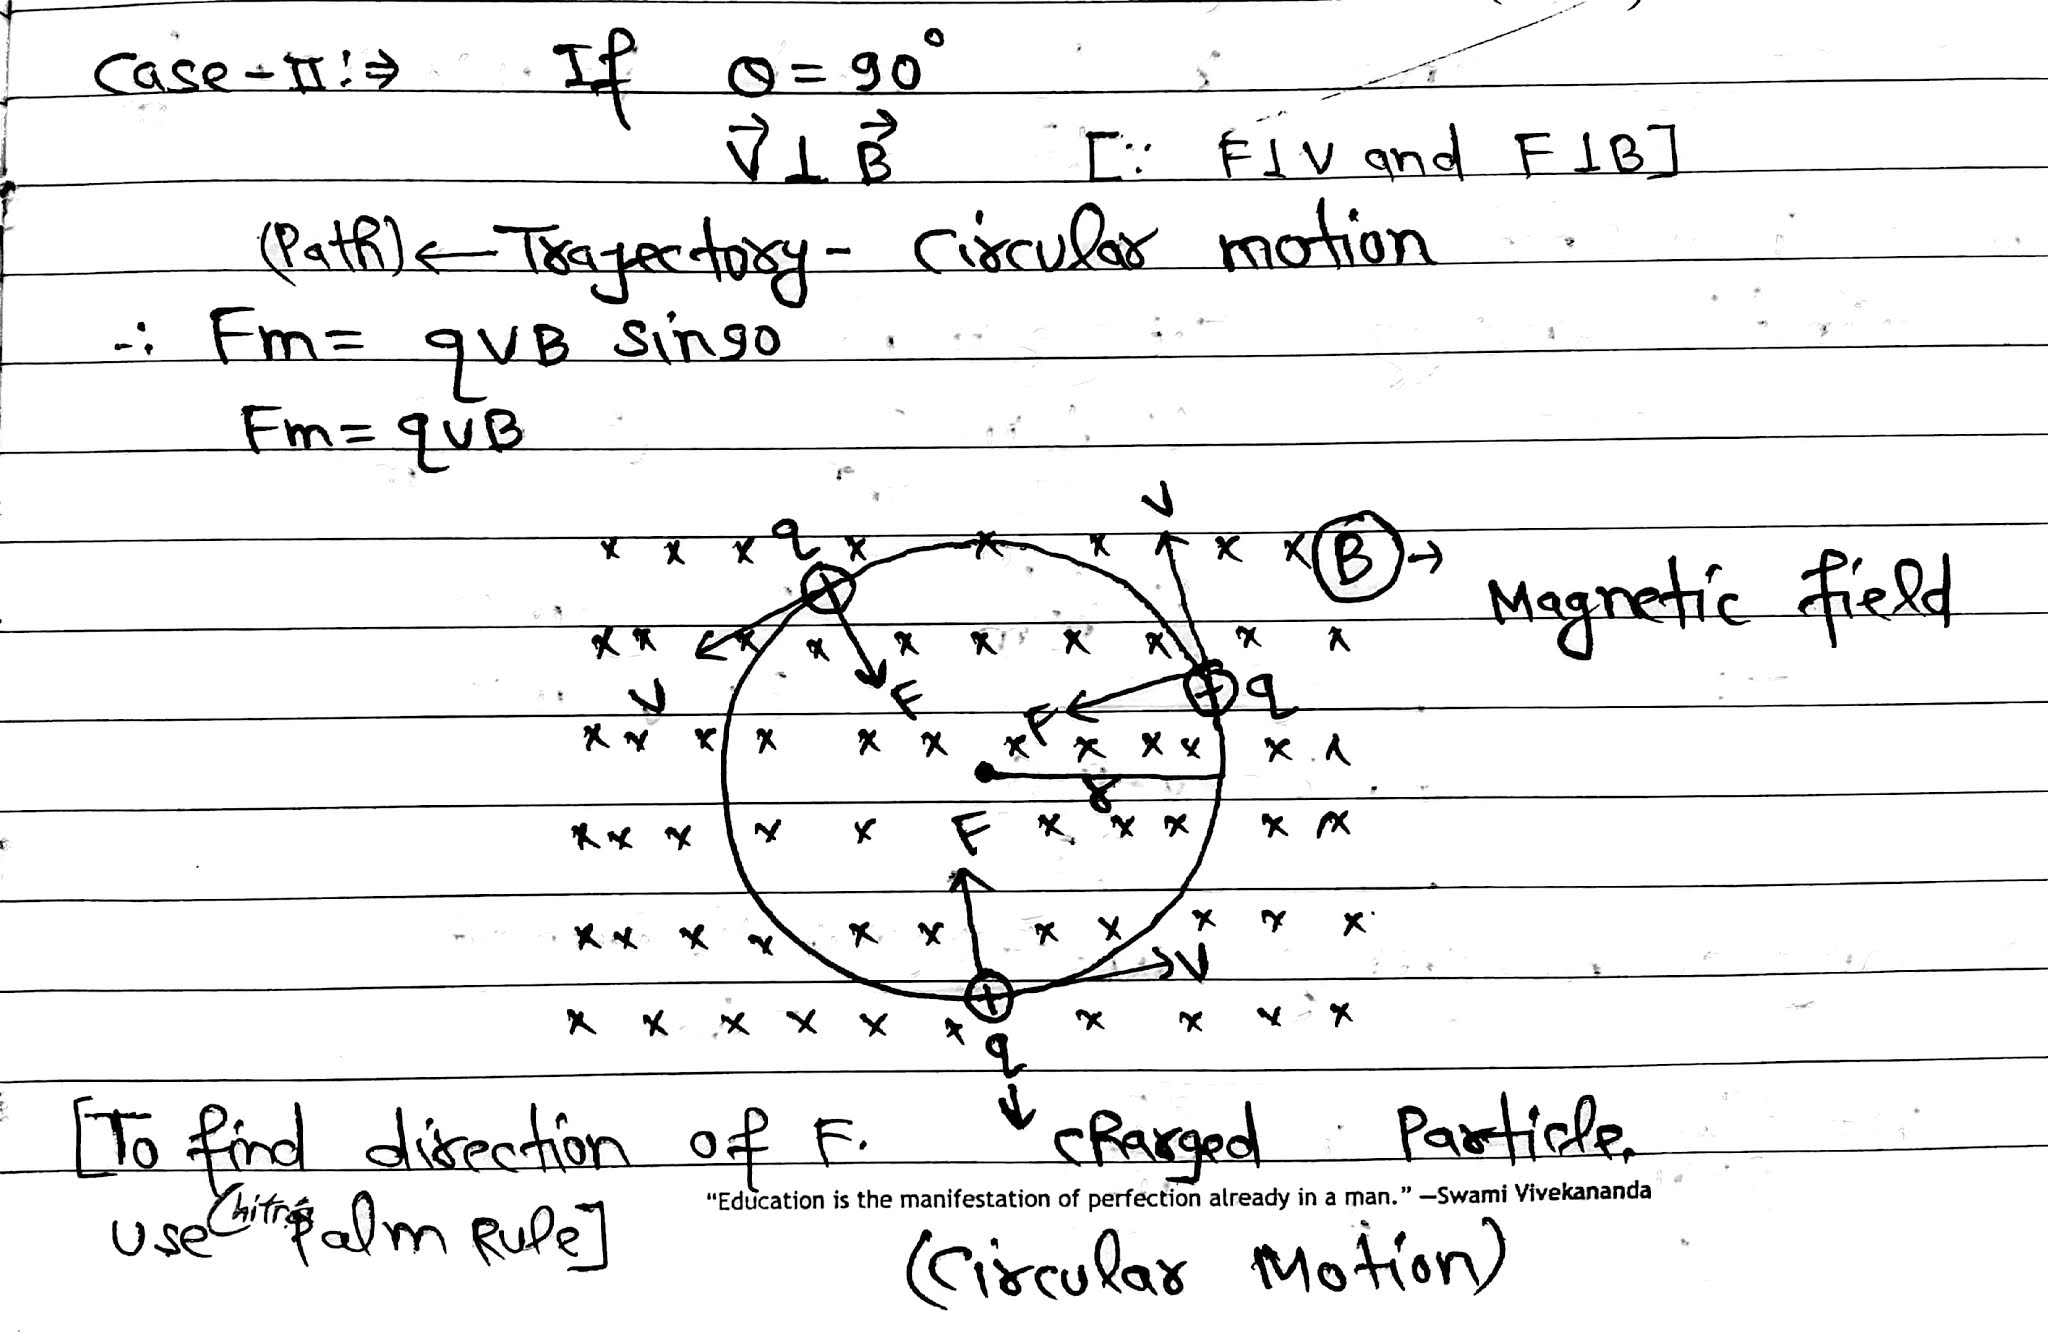 Case-II:⇒ If θ = 90°
V⃗ ⊥ B⃗ [∵ F⊥V and F⊥B]
(Path) ← Trajectory - Circular motion
∴ Fm = qVB sin90
Fm = qVB
V
x x x q x x x x x B →
Magnetic field
x x x x x x x x x x
V F F q
x x x x x x x x x x x x x
r
x x x x x F x x x x x
x x x x x x x x x x x
V
x x x x x x x x x x
q
↓
[To find direction of F. Charged Particle.
"Education is the manifestation of perfection already in a man." —Swami Vivekananda
use Palm Rule]
(Circular Motion)